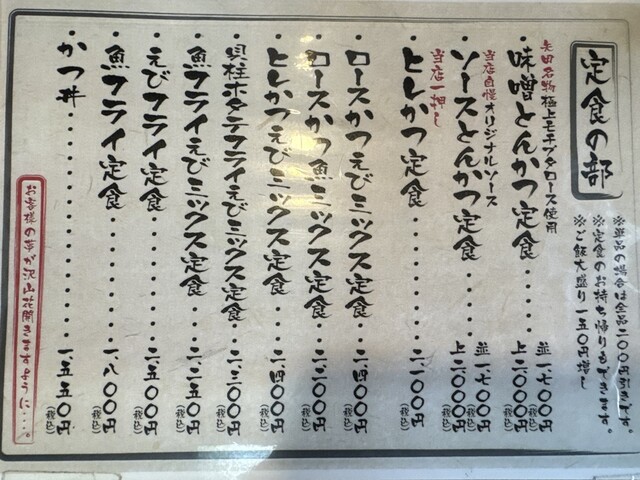 定食の部
※単品の場合は全品二〇〇円引きです。
※定食のお持ち帰りもできます。
※ご飯大盛り一五〇円増し
名物極上モチブタロース使用
・味噌とんかつ定食・・・・・並一、七〇〇円(税込)
上二、〇〇〇円(税込)
当店自慢オリジナルソース
・ソースとんかつ定食・・・・並一、七〇〇円(税込)
上二、〇〇〇円(税込)
当店一押し
・ヒレかつ定食・・・・・・・円(税込)
・ロースかつえびミックス定食・・・円(税込)
・ロースかつ魚ミックス定食・・・円(税込)
・ヒレかつえびミックス定食・・・円(税込)
・貝柱ホタテフライえびミックス定食・・円(税込)
・魚フライえびミックス定食・・・円(税込)
・えびフライ定食・・・・・・・円(税込)
・魚フライ定食・・・・・・・・一、八〇〇円(税込)
・かつ丼・・・・・・・・・・・一、五五〇円(税込)
お客様の夢が沢山花開きますように・・・。